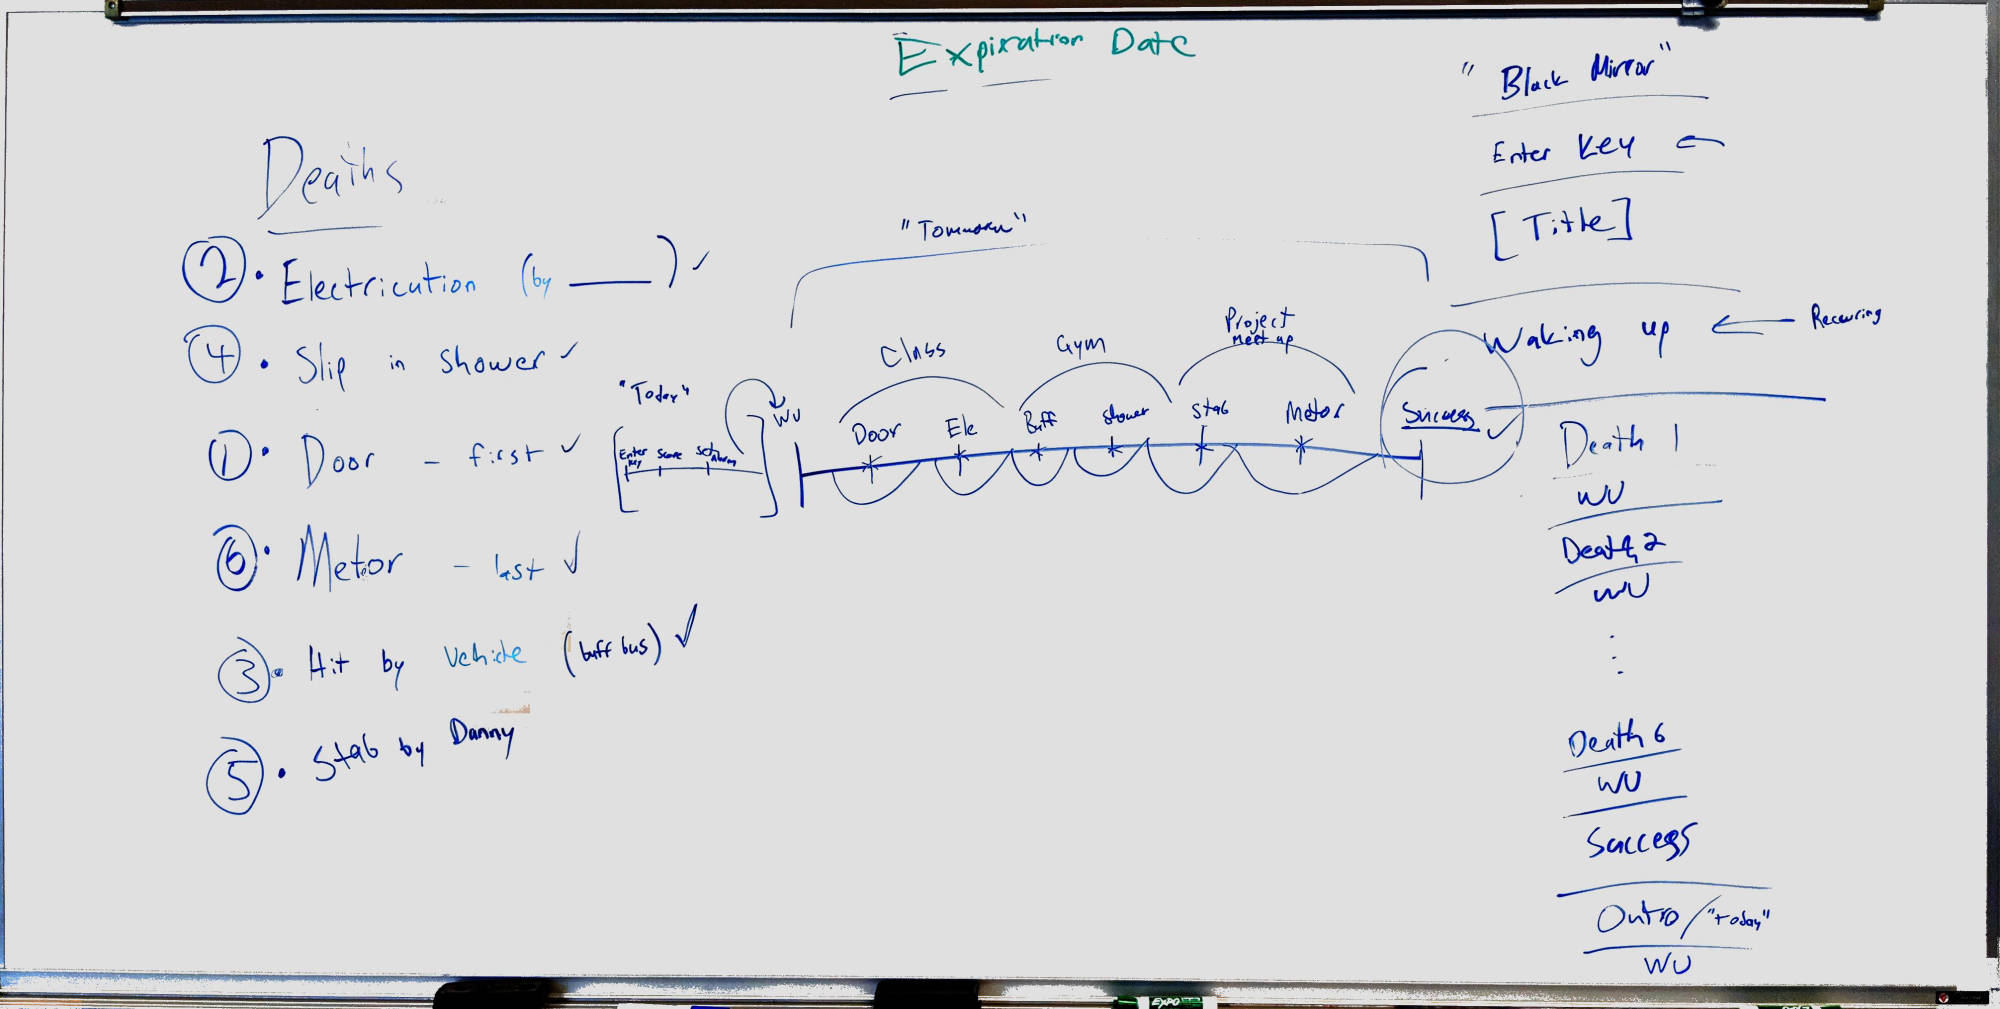 Expiration Date
Deaths
② • Electricution (by ____) ✓
④ • Slip in shower ✓
① • Door - first ✓
⑥ • Metor - last ✓
③ • Hit by Vehicle (buff bus) ✓
⑤ • Stab by Danny
"Today"
Enter Key
Set Alarm
WU
"Tomorrow"
Class
Gym
Project
meet up
Door
Ele
Buff
Shower
Stab
Metor
Success ✓
"Black Mirror"
Enter Key ←
[Title]
Waking up ← Reccuring
Death 1
WU
Death 2
WU
⋮
Death 6
WU
Success
Outro/"today"
WU
EXPO